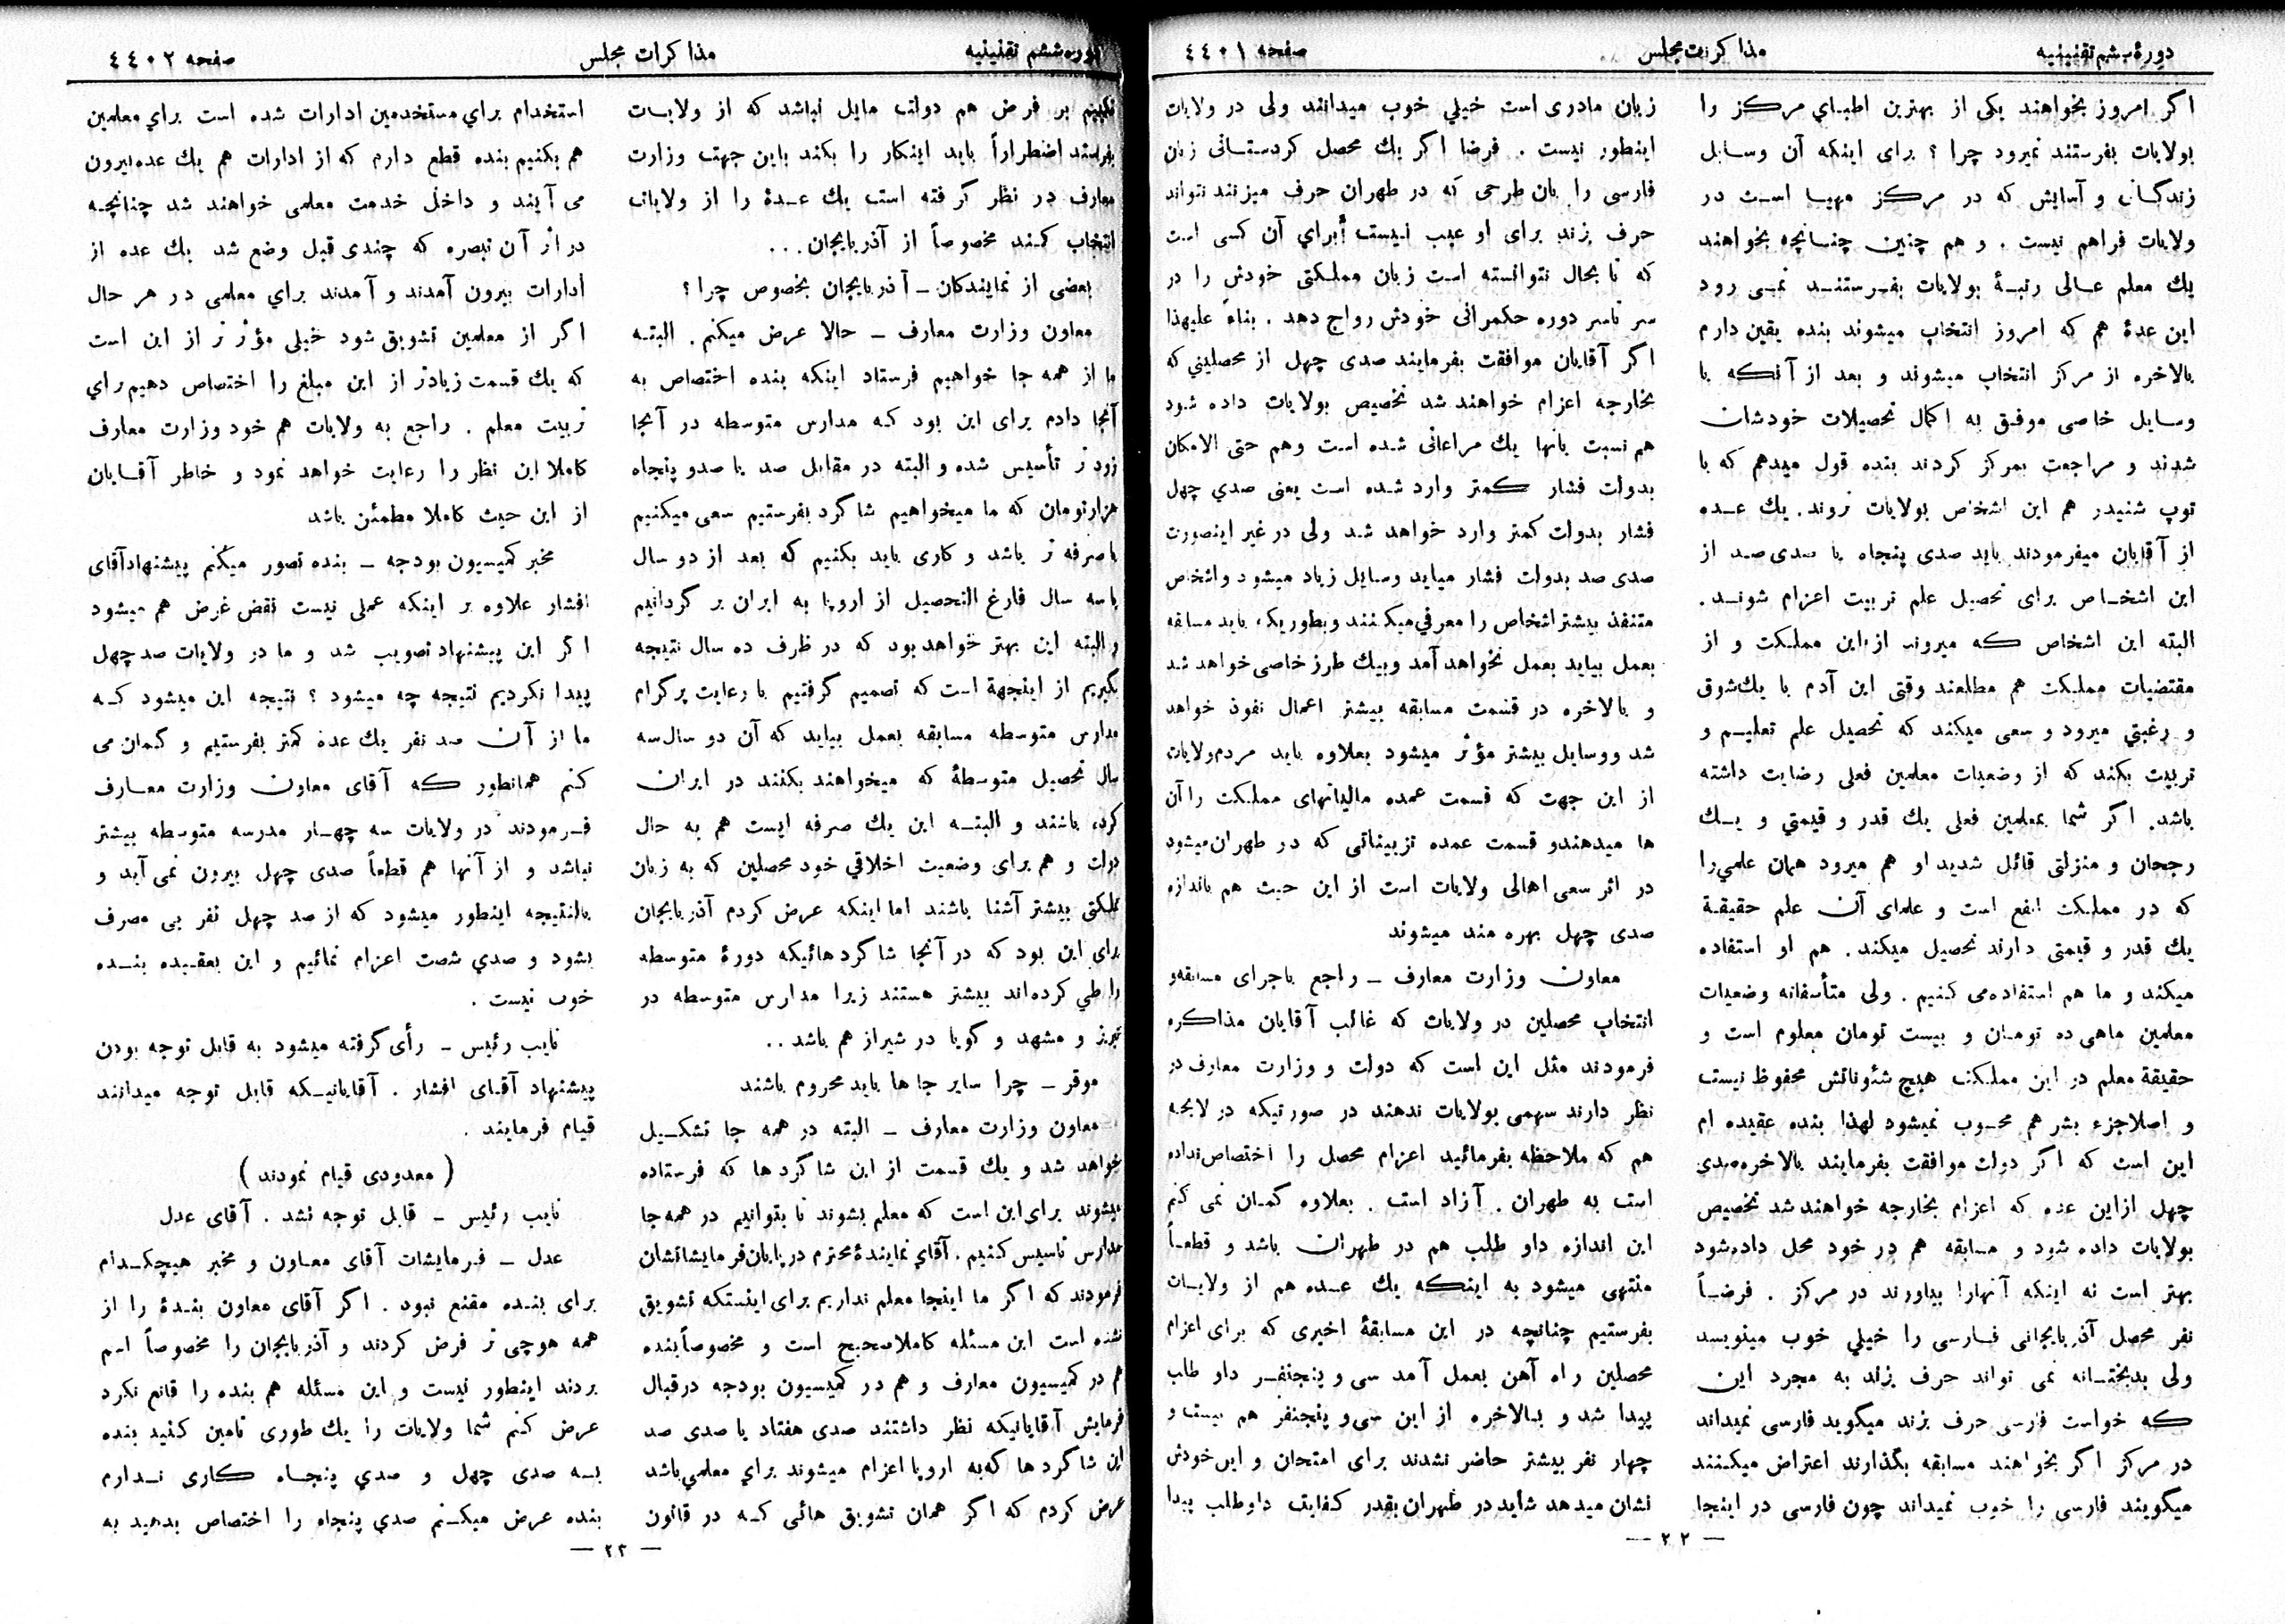 دورهٔ ششم تقنینیه
مذاکرات مجلس
صفحه ٤٤٠١
اگر امروز بخواهند یکی از بهترین اطبای مرکز را
بولایات بفرستند نمیرود چرا ؟ برای اینکه آن وسایل
زندگانی و آسایش که در مرکز مهیا است در
ولایات فراهم نیست . و هم چنین چنانچه بخواهند
یك معلم عالی رتبهٔ بولایات بفرستند نمی رود
این عدهٔ هم که امروز انتخاب میشوند بنده یقین دارم
بالاخره از مرکز انتخاب میشوند و بعد از آنکه با
وسایل خاصی موفق به اکمال تحصیلات خودشان
شدند و مراجعت بمرکز کردند بنده قول میدهم که با
توپ شنیدر هم این اشخاص بولایات نروند. یك عده
از آقایان میفرمودند باید صدی پنجاه یا صدی صد از
این اشخاص برای تحصیل علم تربیت اعزام شوند .
البته این اشخاص که میروند از این مملکت و از
مقتضیات مملکت هم مطلعند وقتی این آدم با یك شوق
و رغبتی میرود و سعی میکند که تحصیل علم تعلیم و
تربیت بکند که از وضعیات معلمین فعلی رضایت داشته
باشد. اگر شما بمعلمین فعلی یك قدر و قیمتی و یك
رجحان و منزلتی قائل شدید او هم میرود همان علمی را
که در مملکت انفع است و علمای آن علم حقیقة
یك قدر و قیمتی دارند تحصیل میکند . هم او استفاده
میکند و ما هم استفاده می کنیم . ولی متأسفانه وضعیات
معلمین ماهی ده تومان و بیست تومان معلوم است و
حقیقة معلم در این مملکت هیچ شئوناتش محفوظ نیست
و اصلا جزء بشر هم محسوب نمیشود لهذا بنده عقیده ام
این است که اگر دولت موافقت بفرمایند بالاخره صدی
چهل از این عده که اعزام بخارجه خواهند شد تخصیص
بولایات داده شود و مسابقه هم در خود محل داده شود
بهتر است نه اینکه آنهارا بیاورند در مرکز . فرضاً
نفر محصل آذربایجانی فارسی را خیلی خوب مینویسد
ولی بدبختانه نمی تواند حرف بزند به مجرد این
که خواست فارسی حرف بزند میگوید فارسی نمیداند
در مرکز اگر بخواهند مسابقه بگذارند اعتراض میکنند
میگویند فارسی را خوب نمیداند چون فارسی در اینجا
زبان مادری است خیلی خوب میدانند ولی در ولایات
اینطور نیست . فرضا اگر یك محصل کردستانی زبان
فارسی را بان طرحی که در طهران حرف میزنند نتواند
حرف بزند برای او عیب نیست برای آن کسی است
که تا بحال نتوانسته است زبان مملکتی خودش را در
سر تاسر دوره حکمرانی خودش رواج دهد . بناءً علیهذا
اگر آقایان موافقت بفرمایند صدی چهل از محصلینی که
بخارجه اعزام خواهند شد تخصیص بولایات داده شود
هم نسبت بانها یك مراعاتی شده است وهم حتی الامکان
بدولت فشار کمتر وارد شده است یعنی صدی چهل
فشار بدولت کمتر وارد خواهد شد ولی در غیر اینصورت
صدی صد بدولت فشار میاید وسایل زیاد میشود و اشخاص
متنفذ بیشتر اشخاص را معرفی میکنند و بطوریکه باید مسابقه
بعمل بیاید بعمل نخواهد آمد و بیك طرز خاصی خواهد شد
و بالاخره در قسمت مسابقه بیشتر اعمال نفوذ خواهد
شد و وسایل بیشتر مؤثر میشود بعلاوه باید مردم ولایات
از این جهت که قسمت عمده مالیاتهای مملکت را آن
ها میدهند و قسمت عمده تزییناتی که در طهران میشود
در اثر سعی اهالی ولایات است از این حیث هم باندازه
صدی چهل بهره مند میشوند
معاون وزارت معارف ــ راجع باجرای مسابقه و
انتخاب محصلین در ولایات که غالب آقایان مذاکره
فرمودند مثل این است که دولت و وزارت معارف در
نظر دارند سهمی بولایات ندهند در صورتیکه در لایحه
هم که ملاحظه بفرمائید اعزام محصل را اختصاص نداده
است به طهران . آزاد است . بعلاوه گمان نمی کنم
این اندازه داو طلب هم در طهران باشد و قطعاً
منتهی میشود به اینکه یك عده هم از ولایات
بفرستیم چنانچه در این مسابقهٔ اخیری که برای اعزام
محصلین راه آهن بعمل آمد سی و پنجنفر داو طلب
پیدا شد و بالاخره از این سی و پنجنفر هم بیست و
چهار نفر بیشتر حاضر نشدند برای امتحان و این خودش
نشان میدهد شاید در طهران بقدر کفایت داوطلب پیدا
— ٢٢ —
دوره ششم تقنینیه
مذاکرات مجلس
صفحه ٤٤٠٢
نکنیم بر فرض هم دولت مایل نباشد که از ولایات
بفرستد اضطراراً باید اینکار را بکند باین جهت وزارت
معارف در نظر گرفته است یك عدهٔ را از ولایات
انتخاب کند مخصوصاً از آذربایجان ...
بعضی از نمایندگان ــ آذربایجان بخصوص چرا ؟
معاون وزارت معارف ــ حالا عرض میکنم . البته
ما از همه جا خواهیم فرستاد اینکه بنده اختصاص به
آنجا دادم برای این بود که مدارس متوسطه در آنجا
زود تر تأسیس شده و البته در مقابل صد یا صدو پنجاه
هزار تومان که ما میخواهیم شاگرد بفرستیم سعی میکنیم
با صرفه تر باشد و کاری باید بکنیم که بعد از دو سال
یا سه سال فارغ التحصیل از اروپا به ایران بر گردانیم
و البته این بهتر خواهد بود که در ظرف ده سال نتیجه
بگیریم از اینجهة است که تصمیم گرفتیم با رعایت پرگرام
مدارس متوسطه مسابقه بعمل بیاید که آن دو سال سه
سال تحصیل متوسطهٔ که میخواهند بکنند در ایران
کرده باشند و البته این یك صرفه ایست هم به حال
دولت و هم برای وضعیت اخلاقی خود محصلین که به زبان
مملکتی بیشتر آشنا باشند اما اینکه عرض کردم آذربایجان
برای این بود که در آنجا شاگرد هائیکه دورهٔ متوسطه
را طی کرده اند بیشتر هستند زیرا مدارس متوسطه در
تبریز و مشهد و گویا در شیراز هم باشد ..
موقر ــ چرا سایر جا ها باید محروم باشند
معاون وزارت معارف ــ البته در همه جا تشکیل
خواهد شد و یك قسمت از این شاگرد ها که فرستاده
میشوند برای این است که معلم بشوند تا بتوانیم در همه جا
مدارس تاسیس کنیم . آقای نمایندهٔ محترم در پایان فرمایشاتشان
فرمودند که اگر ما اینجا معلم نداریم برای اینستکه تشویق
نشده است این مسئله کاملا صحیح است و مخصوصاً بنده
هم در کمیسیون معارف و هم در کمیسیون بودجه در قبال
فرمایش آقایانیکه نظر داشتند صدی هفتاد یا صدی صد
این شاگرد ها که به اروپا اعزام میشوند برای معلمی باشد
عرض کردم که اگر همان تشویق هائی که در قانون
استخدام برای مستخدمین ادارات شده است برای معلمین
هم بکنیم بنده قطع دارم که از ادارات هم یك عده بیرون
می آیند و داخل خدمت معلمی خواهند شد چنانچه
در اثر آن تبصره که چندی قبل وضع شد یك عده از
ادارات بیرون آمدند و آمدند برای معلمی در هر حال
اگر از معلمین تشویق شود خیلی مؤثر تر از این است
که یك قسمت زیادتر از این مبلغ را اختصاص دهیم برای
تربیت معلم . راجع به ولایات هم خود وزارت معارف
کاملا این نظر را رعایت خواهد نمود و خاطر آقایان
از این حیث کاملا مطمئن باشد
مخبر کمیسیون بودجه ــ بنده تصور میکنم پیشنهاد آقای
افشار علاوه بر اینکه عملی نیست نقض غرض هم میشود
اگر این پیشنهاد تصویب شد و ما در ولایات صد چهل
پیدا نکردیم نتیجه چه میشود ؟ نتیجه این میشود که
ما از آن صد نفر یك عده کمتر بفرستیم و گمان می
کنم همانطور که آقای معاون وزارت معارف
فرمودند در ولایات سه چهار مدرسه متوسطه بیشتر
نباشد و از آنها هم قطعاً صدی چهل بیرون نمی آید و
بالنتیجه اینطور میشود که از صد چهل نفر بی مصرف
بشود و صدی شصت اعزام نمائیم و این بعقیده بنده
خوب نیست .
نایب رئیس ــ رأی گرفته میشود به قابل توجه بودن
پیشنهاد آقای افشار . آقایانیکه قابل توجه میدانند
قیام فرمایند .
( معدودی قیام نمودند )
نایب رئیس ــ قابل توجه نشد . آقای عدل
عدل ــ فرمایشات آقای معاون و مخبر هیچکدام
برای بنده مقنع نبود . اگر آقای معاون بندهٔ را از
همه هوچی تر فرض کردند و آذربایجان را مخصوصاً اسم
بردند اینطور نیست و این مسئله هم بنده را قانع نکرد
عرض کنم شما ولایات را یك طوری تامین کنید بنده
به صدی چهل و صدی پنجاه کاری ندارم
بنده عرض میکنم صدی پنجاه را اختصاص بدهید به
— ٢٣ —